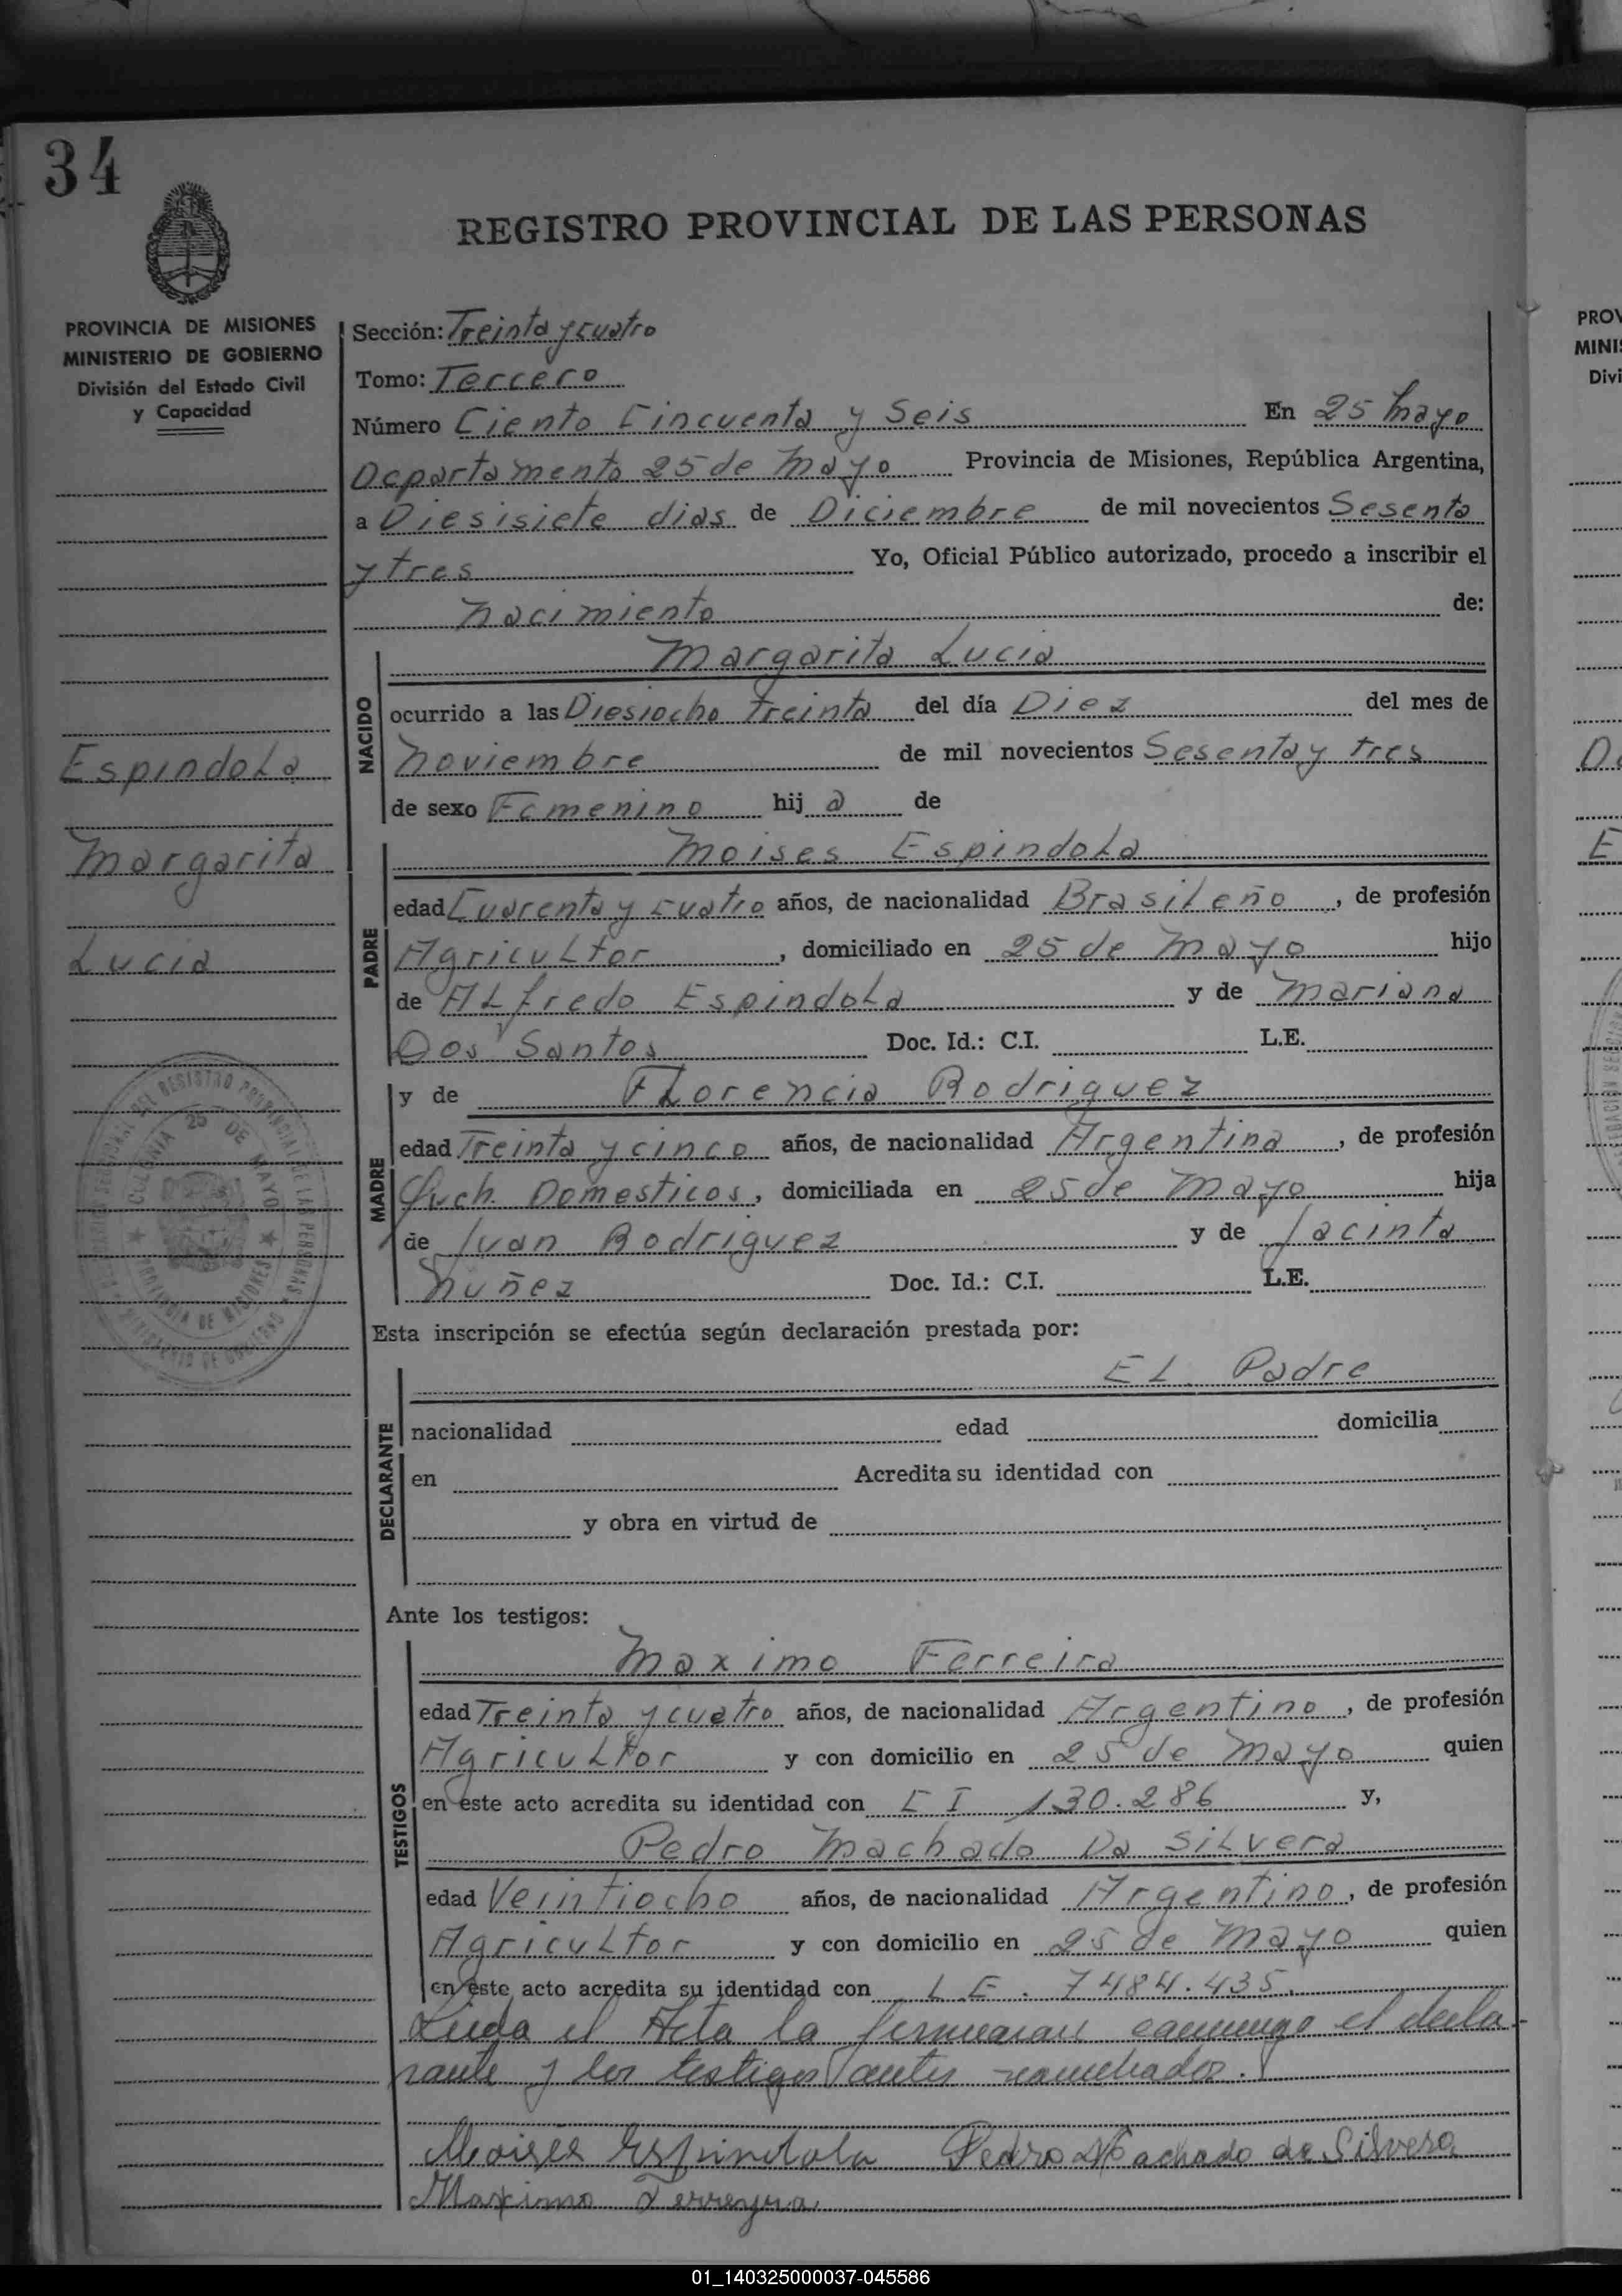 34
REGISTRO PROVINCIAL DE LAS PERSONAS
PROVINCIA DE MISIONES
MINISTERIO DE GOBIERNO
División del Estado Civil
y Capacidad
Espindola
Margarita
Lucia
Sección: Treinta y cuatro
Tomo: Tercero
Número Ciento Cincuenta y Seis En 25 Mayo
Departamento 25 de Mayo Provincia de Misiones, República Argentina,
a Diesisiete dias de Diciembre de mil novecientos Sesenta
y tres Yo, Oficial Público autorizado, procedo a inscribir el
Nacimiento de:
NACIDO
Margarita Lucia
ocurrido a las Diesiocho treinta del día Diez del mes de
Noviembre de mil novecientos Sesenta y tres
de sexo Femenino hij a de
PADRE
Moises Espindola
edad Cuarenta y cuatro años, de nacionalidad Brasileño, de profesión
Agricultor, domiciliado en 25 de Mayo hijo
de Alfredo Espindola y de Mariana
Dos Santos Doc. Id.: C.I. L.E.
MADRE
y de Florencia Rodriguez
edad Treinta y cinco años, de nacionalidad Argentina, de profesión
Quch. Domesticos, domiciliada en 25 de Mayo hija
de Juan Rodriguez y de Jacinta
Nuñez Doc. Id.: C.I. L.E.
COLONIA 25 DE MAYO
PROVINCIA DE MISIONES
Esta inscripción se efectúa según declaración prestada por:
DECLARANTE
EL Padre
nacionalidad edad domicilia
en Acredita su identidad con
y obra en virtud de
Ante los testigos:
TESTIGOS
Maximo Ferreira
edad Treinta y cuatro años, de nacionalidad Argentino, de profesión
Agricultor y con domicilio en 25 de Mayo quien
en este acto acredita su identidad con C I 130.286 y,
Pedro Machado Da Silvera
edad Veintiocho años, de nacionalidad Argentino, de profesión
Agricultor y con domicilio en 25 de Mayo quien
en este acto acredita su identidad con L.E. 7484.435.
Leida el Acta la firmaran conmigo el decla-
rante y los testigos antes nombrados.
Moises Espindola Pedro Machado da Silvera
Maximo Ferreyra
PROV
MINI
Divi
01_140325000037-045586